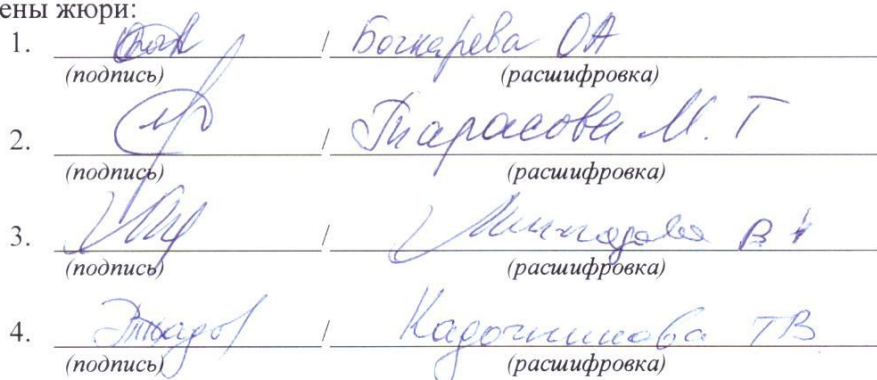 ены жюри:
1. / Бочкарева ОА
(подпись) (расшифровка)
2. / Тарасова М. Г
(подпись) (расшифровка)
3. /
(подпись) (расшифровка)
4. / Кадочникова ТВ
(подпись) (расшифровка)